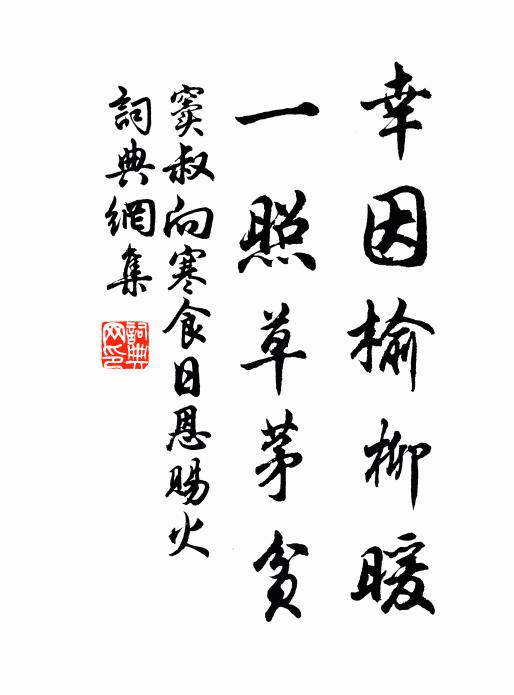 幸因榆柳暖
一照草茅貧
竇叔向寒食日恩賜火
詞典網集
詞典网印